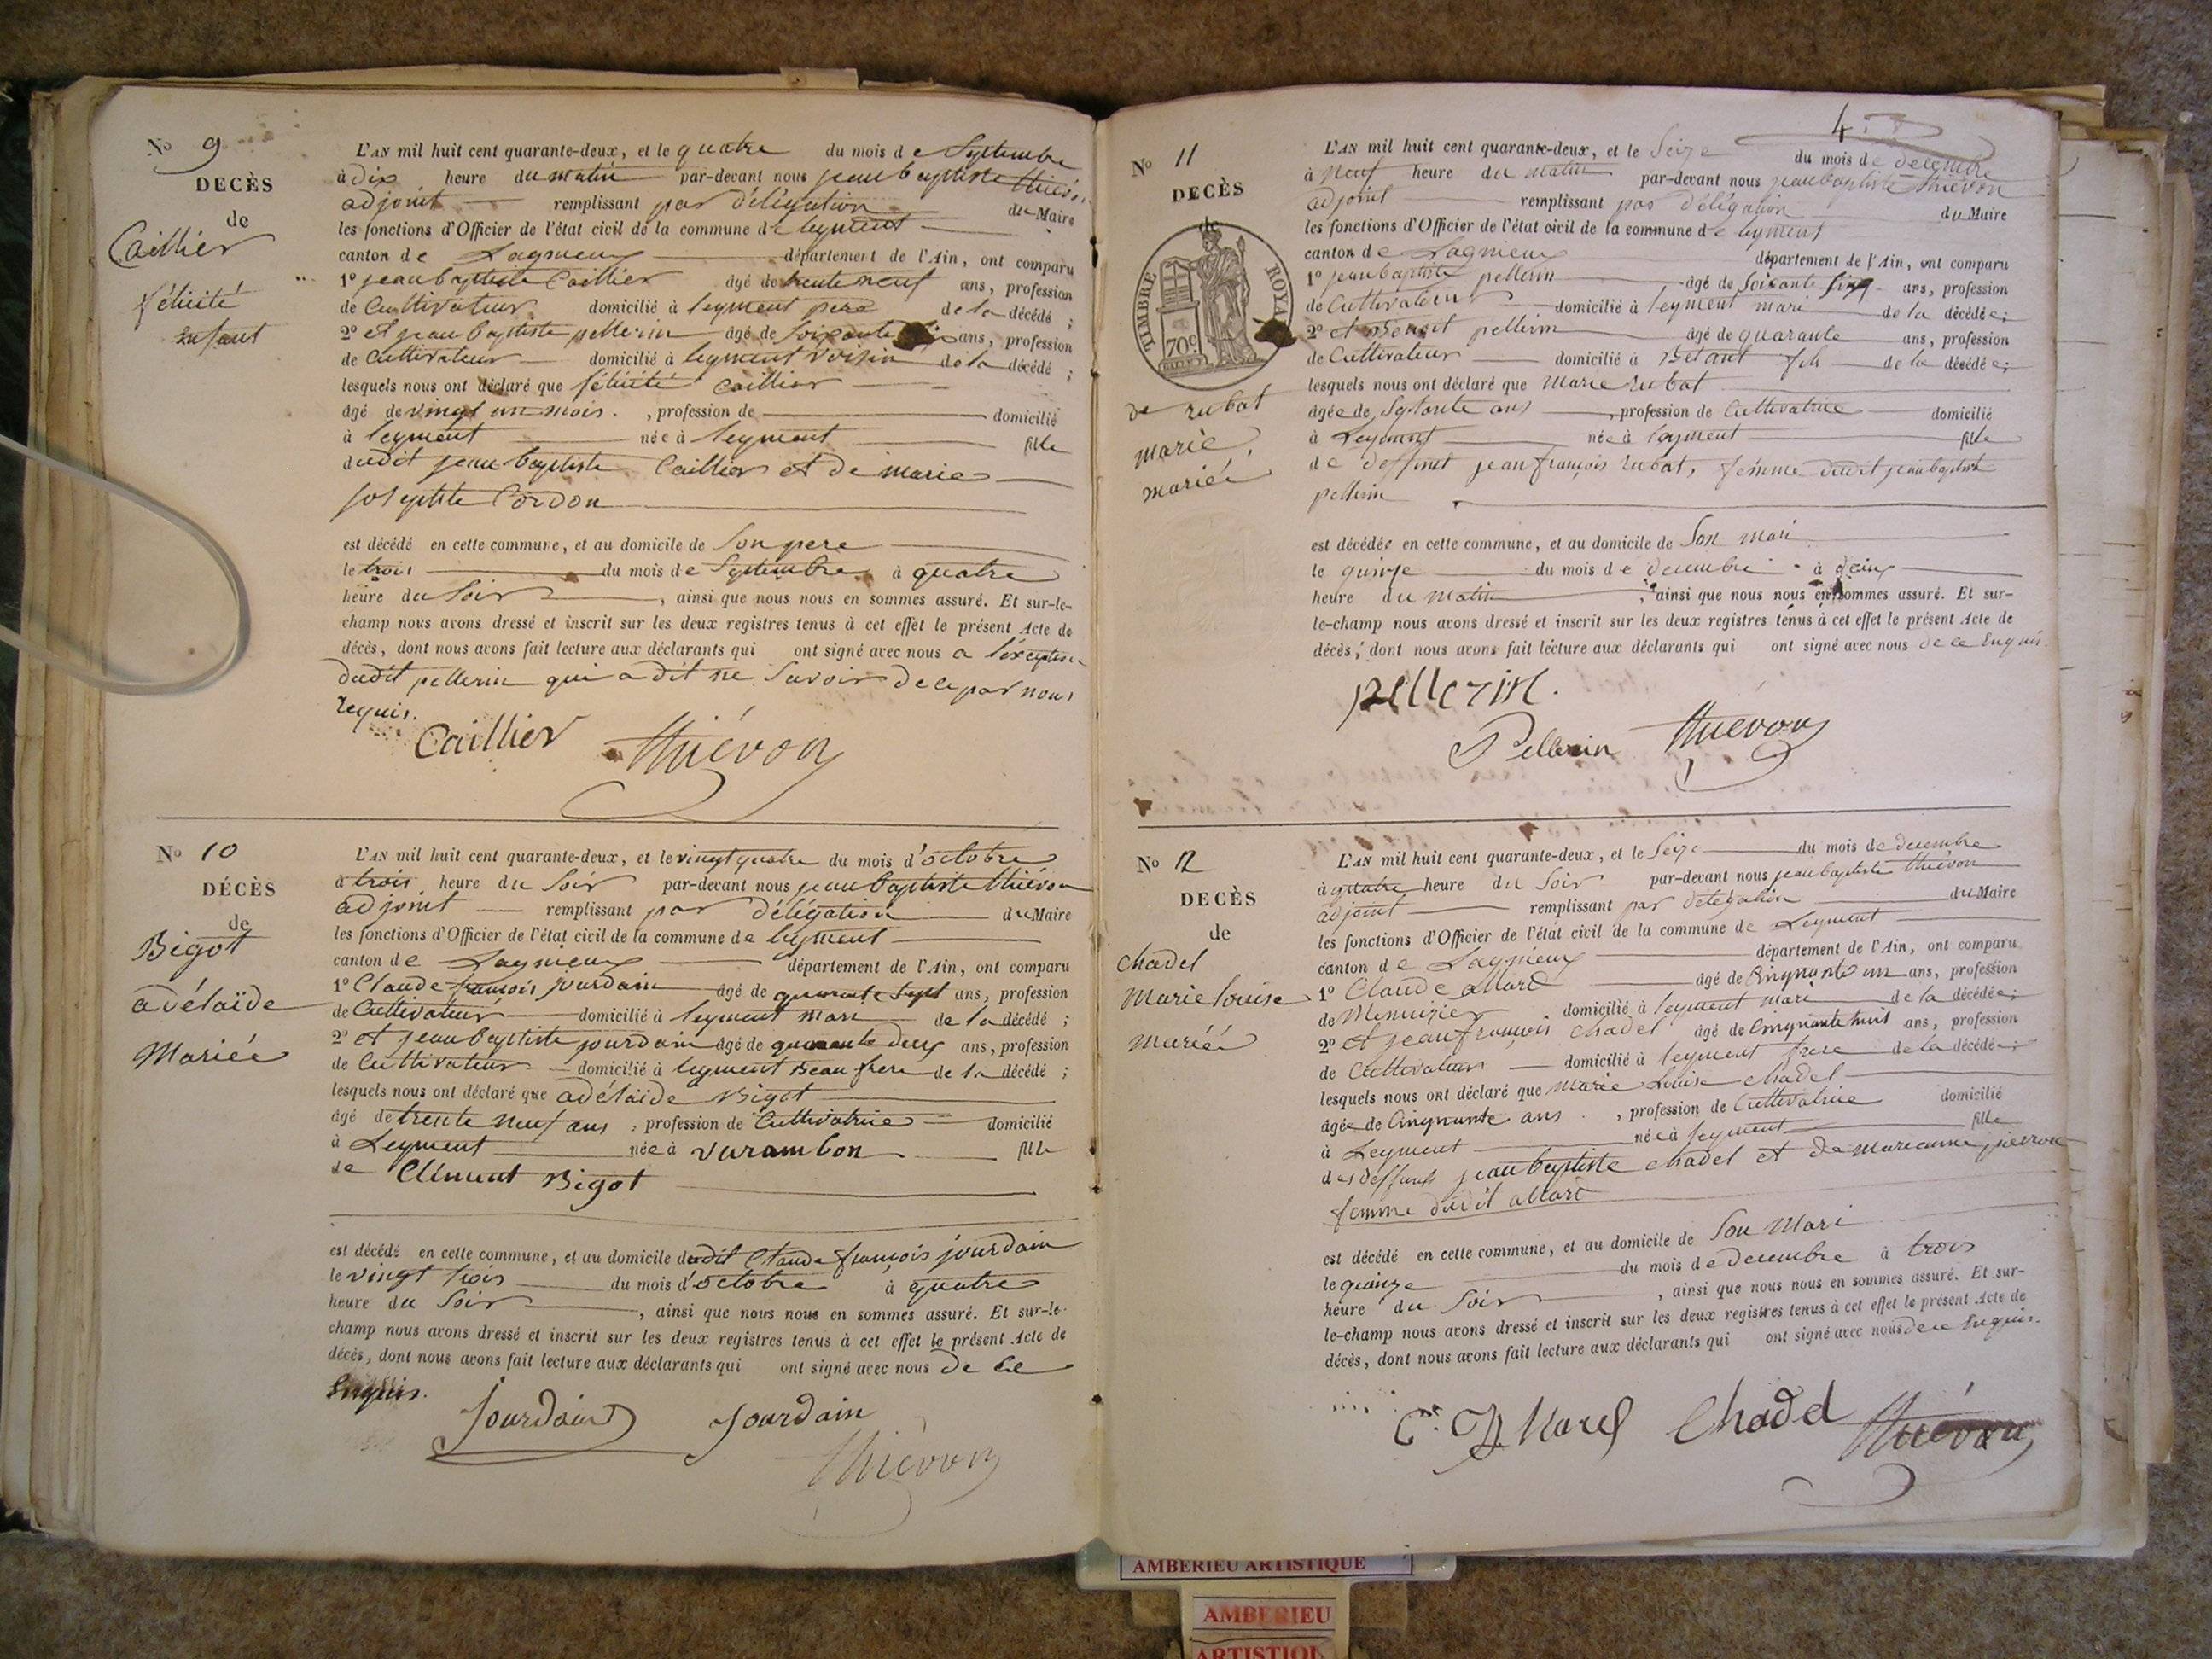 No 9
DECÈS
de
Caillier
félicité
enfant
L'AN mil huit cent quarante-deux, et le quatre du mois de Septembre
à dix heure du matin par-devant nous jean baptiste thiévon
adjoint remplissant par délégation du Maire
les fonctions d'Officier de l'état civil de la commune de leyment
canton de Lagnieux département de l'Ain, ont comparu
1o jean baptiste Caillier âgé de trente neuf ans, profession
de Cultivateur domicilié à leyment pere de la décédé ;
2o et jean baptiste pellerin âgé de soixante ans, profession
de Cultivateur domicilié à leyment voisin de la décédé ;
lesquels nous ont déclaré que félicité Caillier
âgé de vingt un mois. , profession de domicilié
à leyment née à leyment fille
dudit jean baptiste Caillier et de marie
josephte Cordon
est décédé en cette commune, et au domicile de Son pere
le trois du mois de Septembre à quatre
heure du Soir , ainsi que nous nous en sommes assuré. Et sur-le-
champ nous avons dressé et inscrit sur les deux registres tenus à cet effet le présent Acte de
décès, dont nous avons fait lecture aux déclarants qui ont signé avec nous a l'éxception
dudit pellerin qui a dit ne Savoir de ce par nous
requis.
Caillier thiévon
No 10
DÉCÈS
de
Bigot
adélaïde
Mariéé
L'AN mil huit cent quarante-deux, et le vingt quatre du mois d'octobre
à trois heure du Soir par-devant nous jean baptiste thiévon
adjoint remplissant par délégation du Maire
les fonctions d'Officier de l'état civil de la commune de leyment
canton de Lagnieux département de l'Ain, ont comparu
1o Claude françois jourdain âgé de quarante Sept ans, profession
de Cultivateur domicilié à leyment mari de la décédé ;
2o et jean baptiste jourdain âgé de quarante deux ans, profession
de Cultivateur domicilié à leyment Beau frere de la décédé ;
lesquels nous ont déclaré que adélaide Bigot
âgé de trente neuf ans , profession de Cultivatrice domicilié
à Leyment née à varambon fille
de Clément Bigot
est décédé en cette commune, et au domicile dudit Claude françois jourdain
le vingt trois du mois d'octobre à quatre
heure du Soir , ainsi que nous nous en sommes assuré. Et sur-le-
champ nous avons dressé et inscrit sur les deux registres tenus à cet effet le présent Acte de
décès, dont nous avons fait lecture aux déclarants qui ont signé avec nous de ce
Enquis.
Jourdain Jourdain
thiévon
4
No 11
DECÈS
de
TIMBRE ROYAL
70c
de rubat
marie,
mariéé
L'AN mil huit cent quarante-deux, et le Seize du mois de decembre
à neuf heure du matin par-devant nous jean baptiste thiévon
adjoint remplissant par délégation du Maire
les fonctions d'Officier de l'état civil de la commune de leyment
canton de Lagnieux département de l'Ain, ont comparu
1o jean baptiste pellerin âgé de Soixante ans, profession
de Cultivateur domicilié à leyment mari de la décédée ;
2o et Benoit pellerin âgé de quarante ans, profession
de Cultivateur domicilié à Bétant fils de la décédée ;
lesquels nous ont déclaré que marie rubat
âgée de Septante ans , profession de Cultivatrice domicilié
à Leyment née à leyment fille
de deffunt jean françois rubat, femme dudit jean baptiste
pellerin
est décédée en cette commune, et au domicile de Son mari
le quinze du mois de decembre à deux
heure du matin , ainsi que nous nous en sommes assuré. Et sur-
le-champ nous avons dressé et inscrit sur les deux registres tenus à cet effet le présent Acte de
décès, dont nous avons fait lecture aux déclarants qui ont signé avec nous de ce Enquis.
pellerin.
Pellerin thiévon
No 12
DECÈS
de
chadel
Marie louise
mariéé
L'AN mil huit cent quarante-deux, et le Seize du mois de decembre
à quatre heure du Soir par-devant nous jean baptiste thiévon
adjoint remplissant par delégation du Maire
les fonctions d'Officier de l'état civil de la commune de Leyment
canton de Lagnieux département de l'Ain, ont comparu
1o Claude allard âgé de Cinquante un ans, profession
de Menuizier domicilié à leyment mari de la décédée ;
2o et jean françois chadel âgé de Cinquante huit ans, profession
de Cultivateur domicilié à leyment frere de la décédée ;
lesquels nous ont déclaré que marie Louise chadel
âgée de Cinquante ans , profession de Cultivatrice domicilié
à Leyment née à leyment fille
des deffunts jean baptiste chadel et de marieanne
femme dudit allard
est décédé en cette commune, et au domicile de Son Mari
le quinze du mois de decembre à trois
heure du Soir , ainsi que nous nous en sommes assuré. Et sur-
le-champ nous avons dressé et inscrit sur les deux registres tenus à cet effet le présent Acte de
décès, dont nous avons fait lecture aux déclarants qui ont signé avec nous de ce Enquis.
Chadel thiévon
AMBERIEU ARTISTIQUE
AMBERIEU